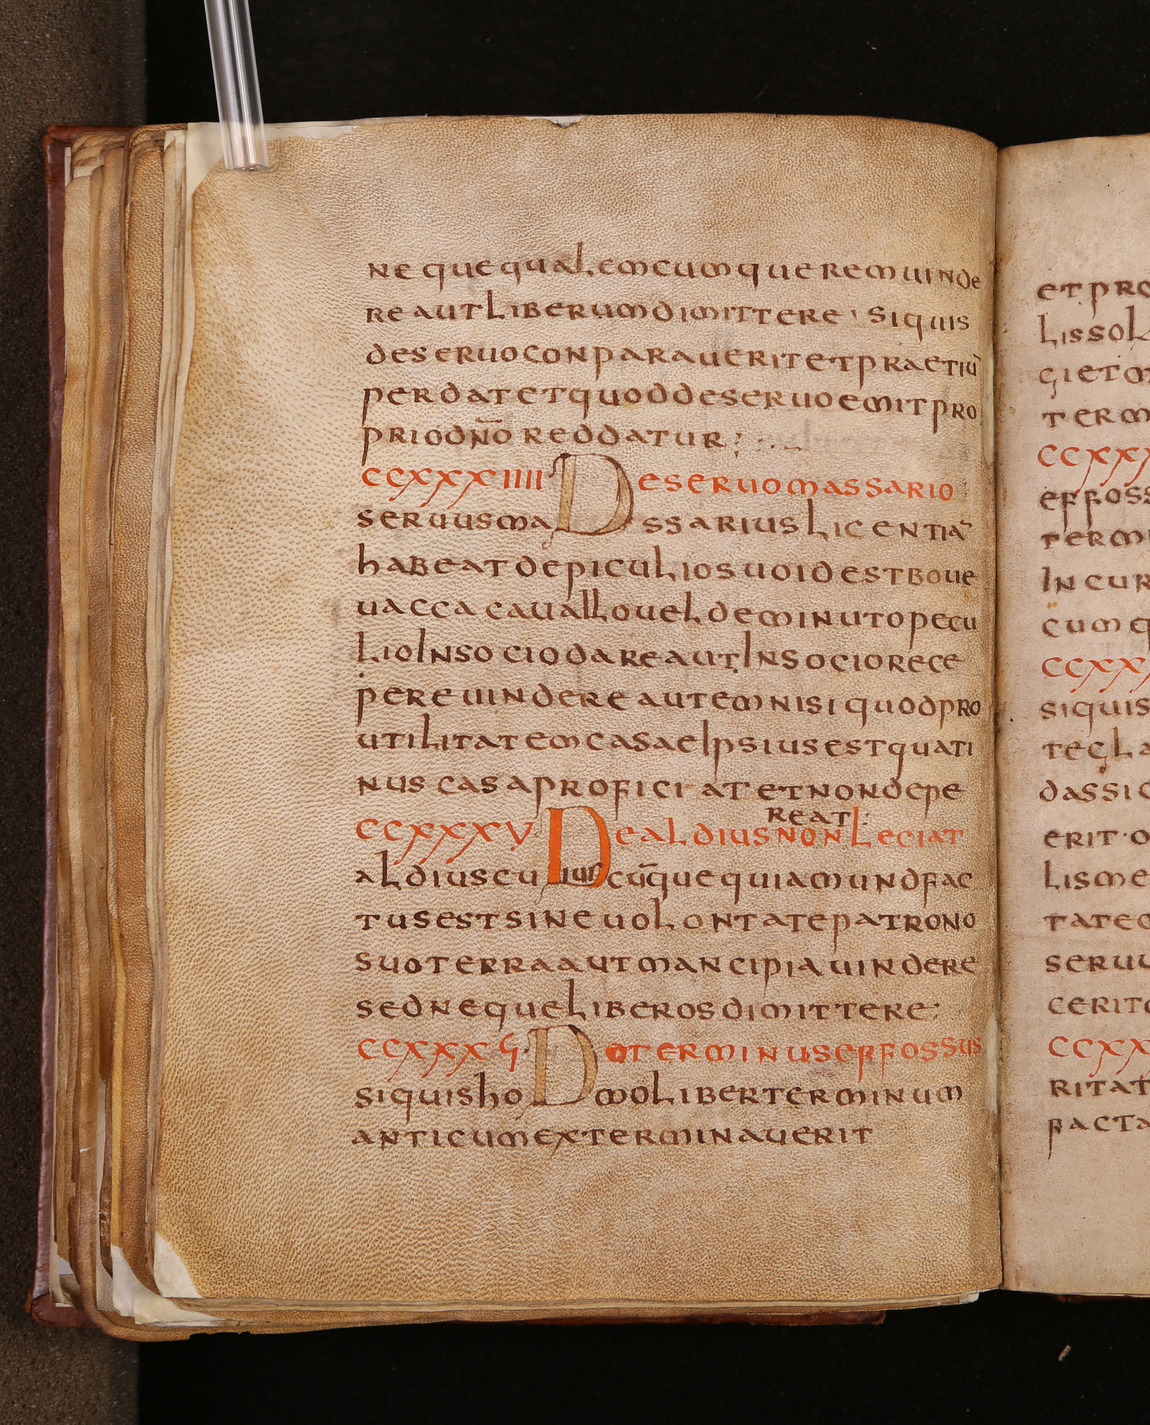 neque qualemcumque rem uinde
re aut liberum dimittere · siquis
de seruo conparauerit et praetiū
perdat et quod de seruo emit pro
prio dn̄o reddatur :
CCXXXIIII De seruo massario
seruus massarius licentiā
habeat de piculios uo id est boue
uacca cauallo uel de minuto pecu
lio In socio dare aut In socio rece
pere uindere autem nisi quod pro
utilitatem casae Ipsius est quati
nus casa proficiat et non depe
reat :
CCXXXV De aldius non leciat
aldius cuiuscūque qui amund fac
tus est sine uolontate patrono
suo terra aut mancipia uindere
sed neque liberos dimittere ·
CCXXXϚ · De terminus effossus
siquis homo liber terminum
anticum exterminauerit
et pro
lis sol
giet
term
CCXXX
effoss
term
In cur
cum
CCXX
siquis
tegla
das si
erit · o
lis me
tate
seruu
cerit
CCXX
ritat
facta